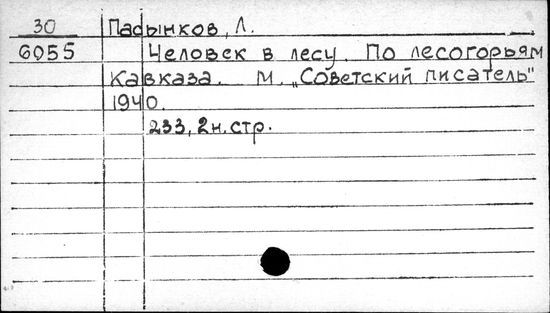 30 Пасынков, Л.
6055 Человек в лесу. По лесогорьям
Кавказа. М. „Советский писатель"
1940.
233, 2 н. стр.